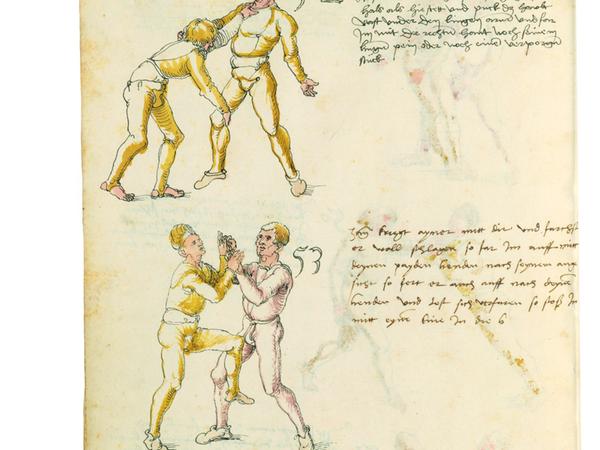 hals als hie stet und puck dein haubt
vast under den lingen arm und far
Im mit der rechten hant noch seinem
lingen pein oder noch einem verporgen
stuck
53
Item kriegt ayner mitt dir und furchst
er woll schlagen so far Im auff mitt
deynen payden henden nach seynem ange
sicht so fert er auch auff nach deynen
henden und lest sich versuren so stoß In
mitt eyne knie In die 6